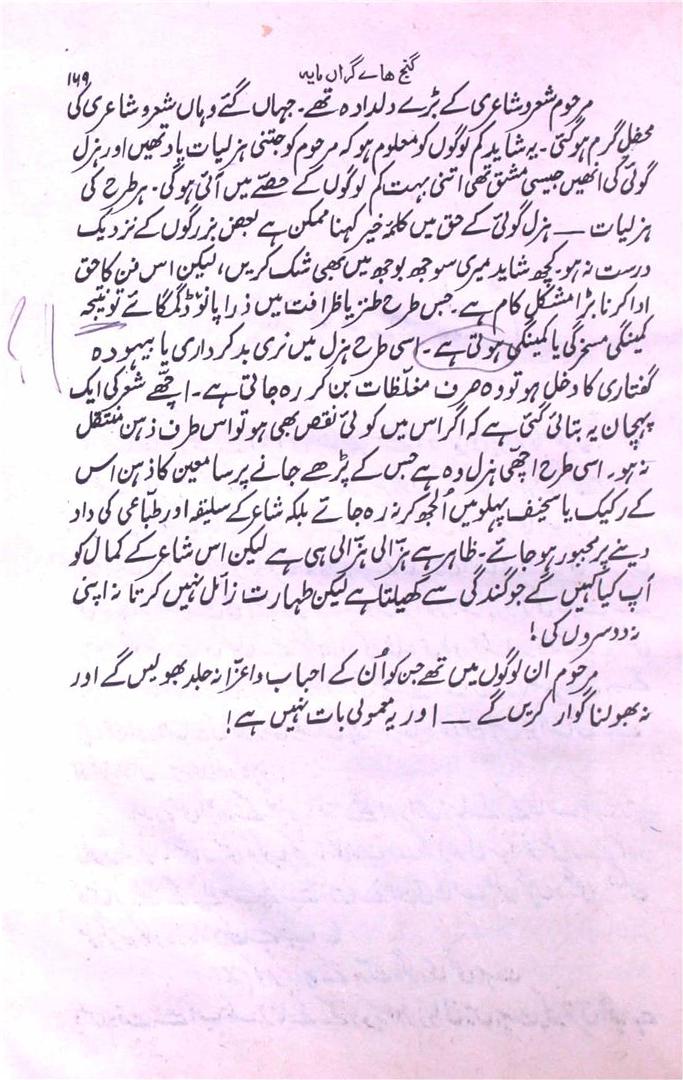 گنج ھاے گراں مایہ
۱۶۹
مرحوم شعر و شاعری کے بڑے دلدادہ تھے۔ جہاں گئے وہاں شعر و شاعری کی
محفل گرم ہو گئی۔ یہ شاید کم لوگوں کو معلوم ہو کہ مرحوم کو جتنی ہزلیات یاد تھیں اور ہزل
گوئی کی انھیں جیسی مشق تھی اتنی بہت کم لوگوں کے حصّے میں آئی ہوگی۔ ہر طرح کی
ہزلیات — ہزل گوئی کے حق میں کلمۂ خیر کہنا ممکن ہے بعض بزرگوں کے نزدیک
درست نہ ہو۔ کچھ شاید میری سوجھ بوجھ میں بھی شک کریں، لیکن اس فن کا حق
ادا کرنا بڑا مشکل کام ہے۔ جس طرح طنز یا ظرافت میں ذرا پانوؤں ڈگمگائے تو نتیجہ
کمینگی مسخرگی یا کمینگی ہوتی ہے۔ اسی طرح ہزل میں نری بدکرداری یا بیہودہ
گفتاری کا دخل ہو تو وہ صرف مغلّظات بن کر رہ جاتی ہے۔ اچھّے شعر کی ایک
پہچان یہ بتائی گئی ہے کہ اگر اس میں کوئی نقص بھی ہو تو اس طرف ذہن منتقل
نہ ہو۔ اسی طرح اچھّی ہزل وہ ہے جس کے پڑھے جانے پر سامعین کا ذہن اس
کے رکیک یا سخیف پہلو میں اُلجھ کر نہ رہ جائے بلکہ شاعر کے سلیقہ اور طبّاعی کی داد
دینے پر مجبور ہو جائے۔ ظاہر ہے ہزّالی ہزّالی ہی ہے لیکن اس شاعر کے کمال کو
آپ کیا کہیں گے جو گندگی سے کھیلتا ہے لیکن طہارت زائل نہیں کرتا نہ اپنی
نہ دوسروں کی!
مرحوم ان لوگوں میں تھے جن کو اُن کے احباب و اعزّا نہ جلد بھولیں گے اور
نہ بھولنا گوارا کریں گے — اور یہ معمولی بات نہیں ہے!